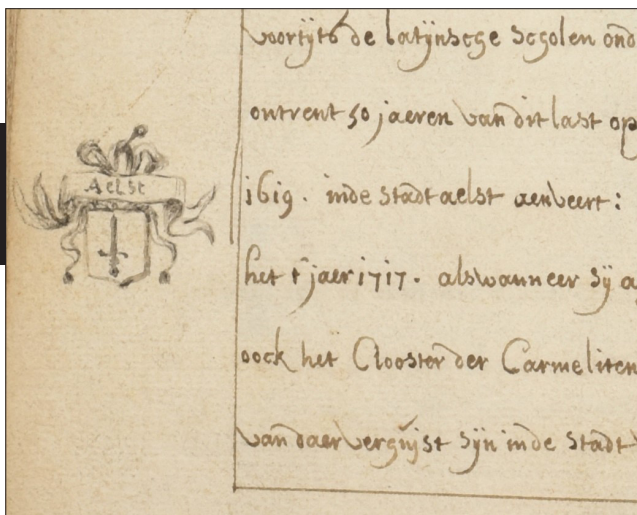 voortyts de latijnsche scholen ond
ontrent 50 jaeren van dit last op
Aelst
1619. inde stadt aelst aenveert:
het t' jaer 1717. als wanneer sÿ a
oock het Clooster der Carmeliten
van daer verhuÿst sÿn inde stadt